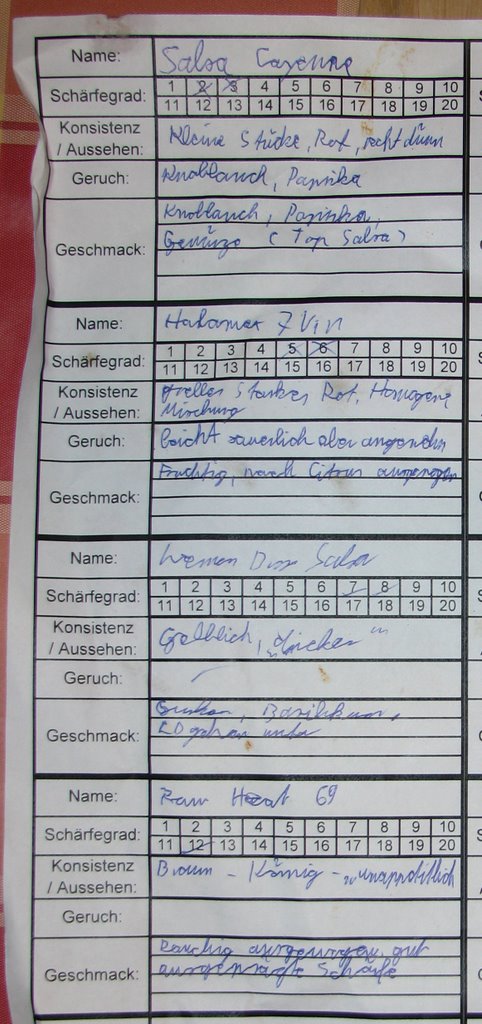 Name: Salsa Cayenne
Schärfegrad: 1 2 3 4 5 6 7 8 9 10
11 12 13 14 15 16 17 18 19 20
Konsistenz / Aussehen: Kleine Stücke, Rot, recht dünn
Geruch: Knoblauch, Paprika
Geschmack: Knoblauch, Paprika,
Gewürze (Top Salsa)
Name: 7 Vin
Schärfegrad: 1 2 3 4 5 6 7 8 9 10
11 12 13 14 15 16 17 18 19 20
Konsistenz / Aussehen: Starkes Rot, Homogene
Mischung
Geruch: leicht säuerlich aber angenehm
Geschmack: Fruchtig, nach Citrus
Name: Salsa
Schärfegrad: 1 2 3 4 5 6 7 8 9 10
11 12 13 14 15 16 17 18 19 20
Konsistenz / Aussehen: Gelblich,
Geruch: -
Geschmack: Basilikum,
Name: Raw Heat 69
Schärfegrad: 1 2 3 4 5 6 7 8 9 10
11 12 13 14 15 16 17 18 19 20
Konsistenz / Aussehen: Braun - Körnig - "unappetitlich
Geruch:
Geschmack: Rauchig ausgewogen, gut
ausgeprägte Schärfe